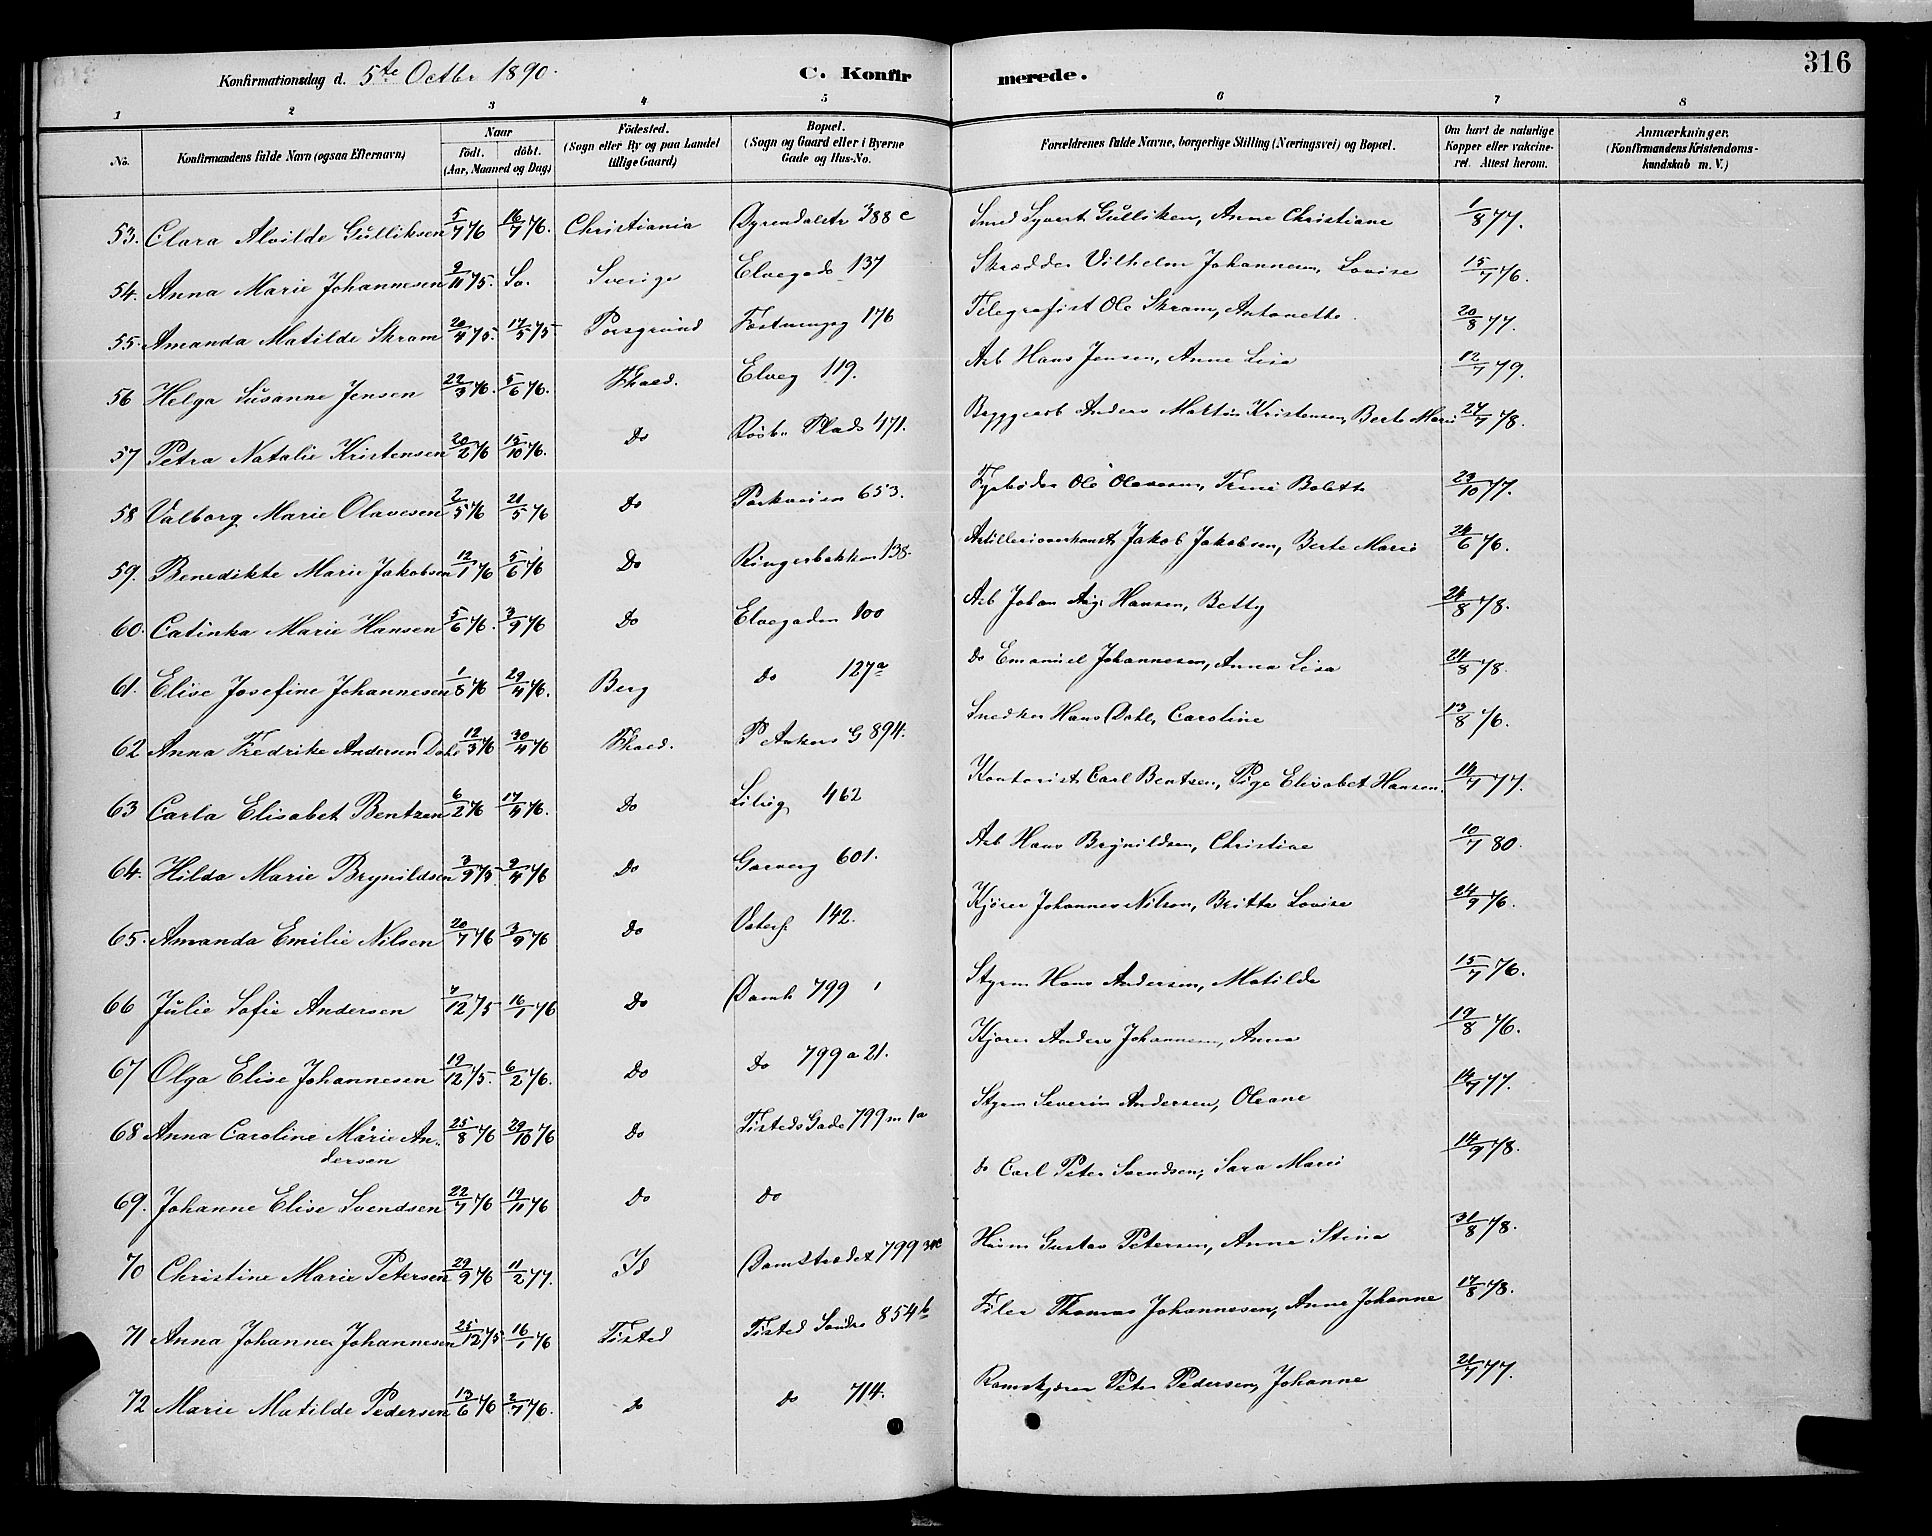 Konfirmationsdag d. 5te Octbr 1890. C. Konfirmerede. 316
1 2 3 4 5 6 7 8
No. Konfirmandens fulde Navn (ogsaa Efternavn) Naar født. døbt. (Aar, Maaned og Dag) Fødested. (Sogn eller By og paa Landet tillige Gaard) Bopæl. (Sogn og Gaard eller i Byerne Gade og Hus-No. Forældrenes fulde Navne, borgerlige Stilling (Næringsvei) og Bopæl. Om havt de naturlige Kopper eller vakcineret. Attest herom. Anmærkninger. (Konfirmandens Kristendomskundskab m. V.)
53. Clara Alvilde Gulliksen 5/7 76 16/7 76. Christiania 388 c Smed Syvert Gulliksen, Anne Christiane 1/8 77.
54. Anna Marie Johannesen 9/11 75. Do. Sverige Elvegade 137 Skrædder Vilhelm Johannesen, Lovise 15/7 76.
55. Amanda Matilde Skram 20/4 75. 17/5 75 Porsgrund 176 Telegrafist Ole Skram, Antonette 20/8 77.
56 Helga Susanne Jensen 22/3 76. 5/6 76. Fhald. Elveg 119. Arb Hans Jensen, Anne Lisa 12/7 79.
57 Petra Natalie Kristensen 20/2 76 15/10 76. Do Plads 471. Bryggearb Anders Martin Kristensen, Berte Marie 24/7 78.
58 Valborg Marie Olavesen 2/5 76 21/5 76 Do Parkveien 653. Fyrbøder Ole Olavesen, Trine Bolette 23/10 77.
59. Benedikte Marie Jakobsen 12/1 76 5/6 76 Do Ringerbakken 138. Jakob Jakobsen, Berte Marie 24/6 76.
60. Catinka Marie Hansen 5/6 76. 3/9 76 Do Elvegaden 100 Arb Johan Aug. Hansen, Betty 24/8 78.
61. Elise Josefine Johannesen 1/3 76 29/4 76. Berg Do 127a do Emanuel Johannesen, Anna Lisa 24/8 78.
62 Anna Fredrike Andersen Dahl 12/3 76 30/4 76 Fhald. P Ankers G 894. Snedker Hans Dahl, Caroline 13/8 76.
63 Carla Elisabet Bentzen 6/2 76 17/4 76. Do 462 Kontorist Carl Bentsen, Pige Elisabet Hansen. 14/7 77.
64. Hilda Marie Brynildsen 3/9 75 2/4 76 Do Garverg 601. Arb Hans Brynildsen, Christine 10/7 80.
65. Amanda Emilie Nilsen 20/7 76 3/9 76 Do 142. Kjører Johannes Nilsen, Britta Lovise 24/9 76.
66 Julie Sofie Andersen 7/12 75 16/1 76 Do Damh 799 Styrm Hans Andersen, Matilde 15/7 76.
67 Olga Elise Johannesen 19/12 75. 6/2 76. Do Do 799 a 21. Kjører Anders Johannesen, Anna 19/8 76.
68 Anna Caroline Marie Andersen 25/8 76 29/10 76 Do Tisteds Gade 799 m 1a Styrm Severin Andersen, Oleane 14/7 77.
69. Johanne Elise Svendsen 22/7 76 19/11 76 Do Do do Carl Peter Svendsen, Sara Marie 14/9 78.
70 Christine Marie Petersen 29/9 76 11/2 77. Id Damstrædet 799 Gustav Petersen, Anna Stina 31/8 78.
71 Anna Johanne Johannesen 25/12 75 16/1 76 Tisted Tisted Søndre 854 b Filer Thomas Johannesen, Anne Johanne 17/8 78.
72 Marie Matilde Pedersen 13/6 76 2/7 76. do do 714. Peter Pedersen, Johanne 21/7 77.